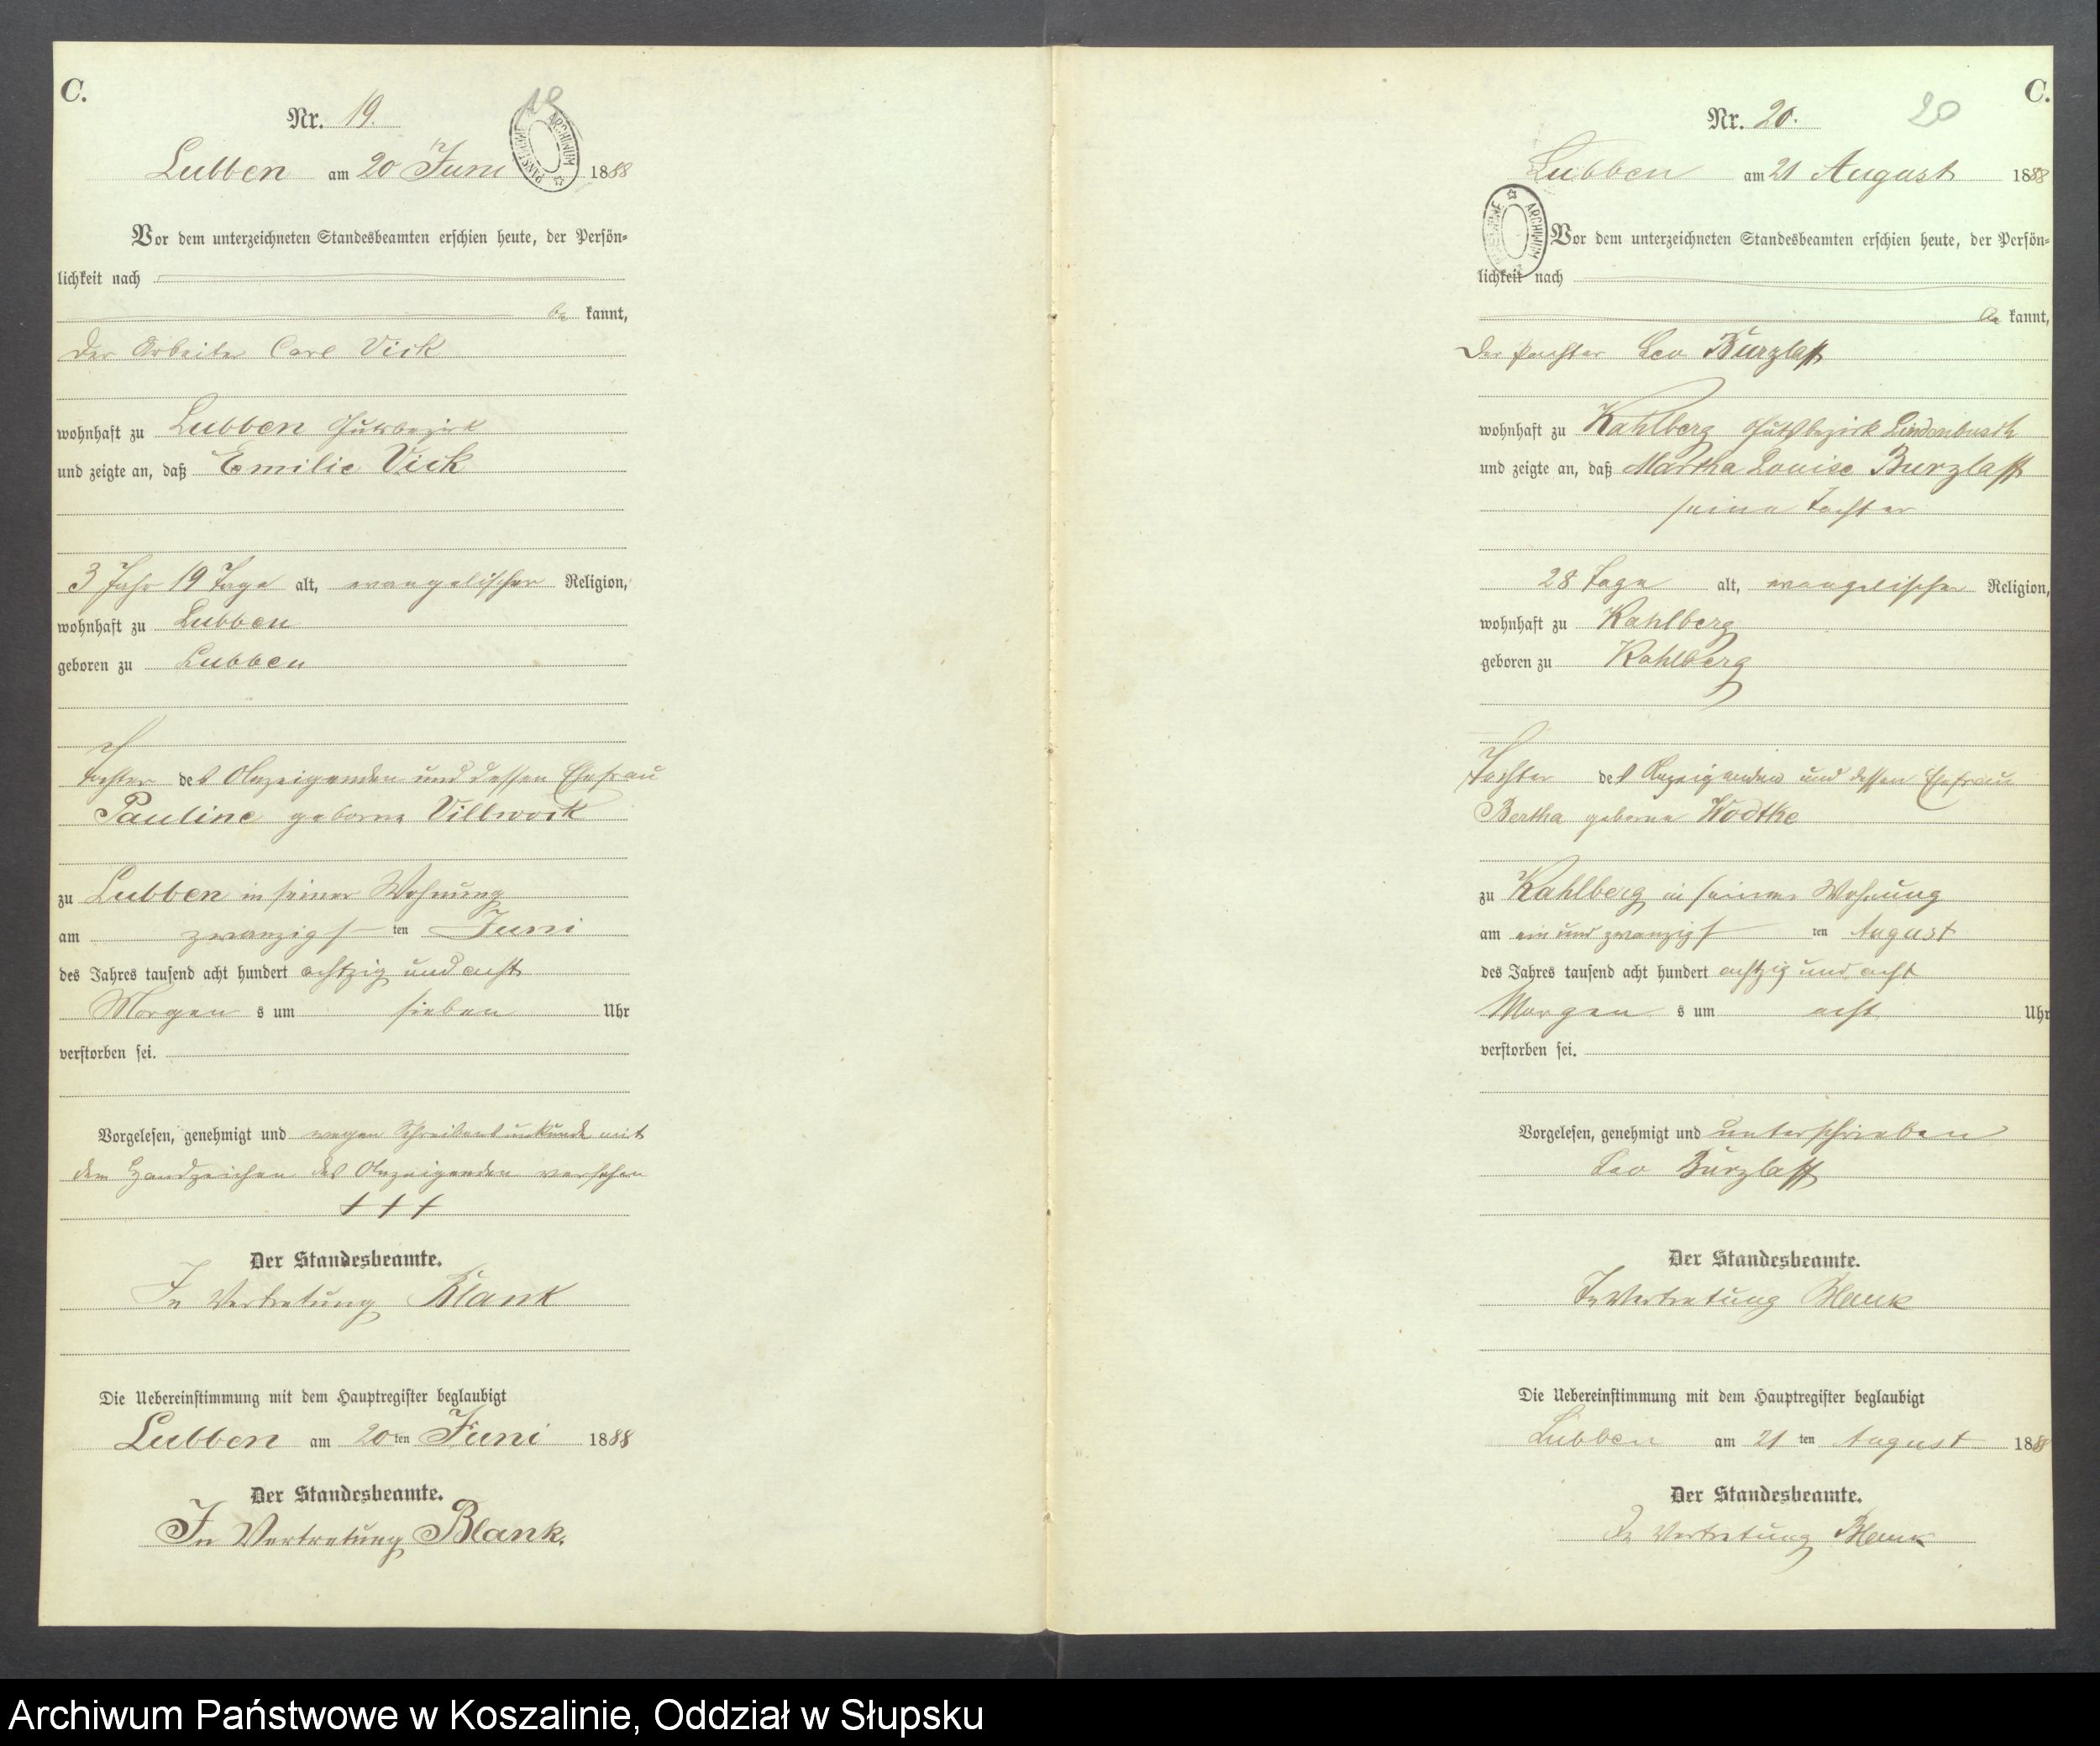 C.
Nr. 19.
19
Lubben am 20 Juni 1888
PAŃSTWOWE ARCHIWUM
Vor dem unterzeichneten Standesbeamten erschien heute, der Persön=
lichkeit nach
be kannt,
der Arbeiter Carl Vick
wohnhaft zu Lubben Gutsbezirk
und zeigte an, daß Emilie Vick
3 Jahr 19 Tage alt, evangelischer Religion,
wohnhaft zu Lubben
geboren zu Lubben
Tochter des Anzeigenden und dessen Ehefrau
Pauline geborne Villwock
zu Lubben in seiner Wohnung
am zwanzigsten Juni
des Jahres tausend acht hundert achtzig und acht
Morgens um sieben Uhr
verstorben sei.
Vorgelesen, genehmigt und wegen Schreibensunkunde mit
dem Handzeichen des Anzeigenden versehen
+++
Der Standesbeamte.
In Vertretung Blank
Die Uebereinstimmung mit dem Hauptregister beglaubigt
Lubben am 20ten Juni 1888
Der Standesbeamte.
In Vertretung Blank.
C.
Nr. 20.
20
Lubben am 21 August 1888
ARCHIWUM
Vor dem unterzeichneten Standesbeamten erschien heute, der Persön=
lichkeit nach
be kannt,
der Pächter Leo Burzlaff
wohnhaft zu Kahlberg Gutsbezirk Lindenbusch
und zeigte an, daß Martha Louise Burzlaff
seine Tochter
28 Tage alt, evangelischer Religion,
wohnhaft zu Kahlberg
geboren zu Kahlberg
Tochter des Anzeigenden und dessen Ehefrau
Bertha geborne Wodtke
zu Kahlberg in seiner Wohnung
am ein und zwanzigsten August
des Jahres tausend acht hundert achtzig und acht
Morgens um acht Uhr
verstorben sei.
Vorgelesen, genehmigt und unterschrieben
Leo Burzlaff
Der Standesbeamte.
In Vertretung Blank
Die Uebereinstimmung mit dem Hauptregister beglaubigt
Lubben am 21ten August 1888
Der Standesbeamte.
In Vertretung Blank
Archiwum Państwowe w Koszalinie, Oddział w Słupsku